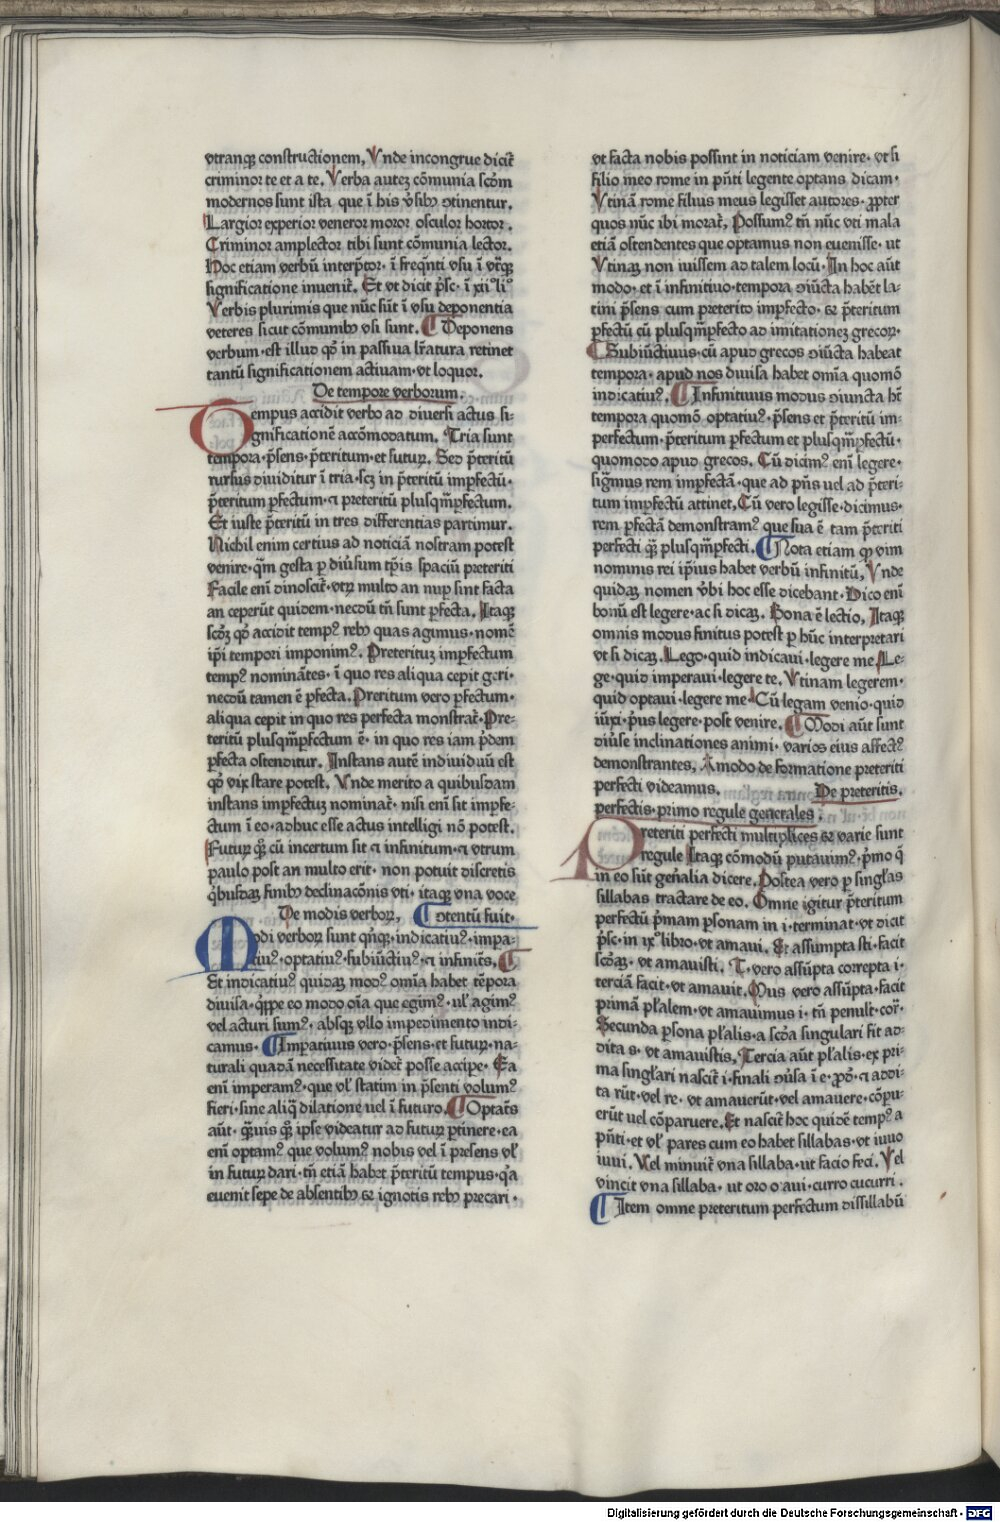 vtranqꝫ constructionem, Vnde incongrue dicit᷑
criminor te et a te. Verba autez cōmunia scḋm
modernos sunt ista que ī his v̄sibꝰ ↄtinentur.
Largior experior veneror moror osculor hortor.
Criminor amplector tibi sunt cōmunia lector.
Hoc etiam verbū interp̄tor· ī freq̄nti vsu ī vtrāqꝫ
significatione inuenit᷑. Et vt dicit p̄sc· ī xiº liº
Verbis plurimis que nūc sūt ī vsu deponentia
veteres sicut cōmunibꝰ vsi sunt. Deponens
verbum·est illud qḋ in passiua lr̄atura retinet
tantū significationem actiuam·vt loquor.
De tempore verborum.
Tempus accidit verbo ad diuersi actus si-
gnificationē accōmodatum. Tria sunt
tempora·p̄sens·p̄teritum·et futuꝝ. Sed p̄teritū
rursus diuiditur ī tria·scꝫ in p̄teritū imꝑfectū·
p̄teritum ꝑfectum·⁊ preteritū plusqm̄ꝑfectum.
Et iuste p̄teritū in tres differentias partimur.
Nichil enim certius ad noticiā nostram potest
venire·qm̄ gesta ꝑ diu̓sum tꝑis spaciū preteriti
Facile eni̅ dinoscit᷑·vtꝝ multo an nuꝑ sint facta
an ceperūt quidem·necdū tn̄ sunt ꝑfecta. Itaqꝫ
scḋꝫ qḋ accidit tempꝰ rebꝰ quas agimus·nomē
ip̄i tempori imponimꝰ. Preterituꝫ imꝑfectum
tempꝰ nominātes·ī quo res aliqua cepit geri·
necdū tamen ē ꝑfecta. Preritum vero ꝑfectum·
aliqua cepit in quo res perfecta monstrat᷑. Pre-
teritū plusqm̄ꝑfectum ē· in quo res iam p̄dem
ꝑfecta ostenditur. Instans autē indiuiduū est
qḋ vix stare potest. Vnde merito a quibusdam
instans imꝑfectuꝫ nominat᷑· nisi eni̅ sit imꝑfe-
ctum ī eo·adhuc esse actus intelligi nō potest.
Futuꝝ qꝫ cū incertum sit ⁊ infinitum·⁊ vtrum
paulo post an multo erit· non potuit discretis
qͥbusdaꝫ finibꝰ declinacōnis vti· itaqꝫ vna voce
De modis verboꝝ, ↄtentū fuit·
Modi verboꝝ sunt qͥnqꝫ·indicatiuꝰ·impa-
tiuꝰ·optatiuꝰ·subiūctiuꝰ·⁊ infinit᷑s.
Et indicatiuꝰ quidaꝫ modꝰ om̄ia habet tēpora
diuisa·qͥppe eo modo oīa que egimꝰ·ul̓ agimꝰ
vel acturi sumꝰ· absqꝫ vllo impedimento indi-
camus· Imꝑatiuus vero·p̄sens·et futuꝝ·na-
turali quadā necessitate videt᷑ posse accipe· Ea
eni̅ imperamꝰ·que vl̓ statim in p̄senti volumꝰ
fieri·sine aliqͣ dilatione uel ī futuro. Optat᷑s
aūt· qͣuis qꝫ ipse videatur ad futuꝝ ꝑtinere·ea
eni̅ optamꝰ que volumꝰ nobis vel ī presens vl̓
in futuꝝ dari·tn̄ etiā habꝫ p̄teritū tempus·qͥa
euenit sepe de absentibꝰ ⁊ ignotis rebꝰ precari·
vt facta nobis possint in noticiam venire· vt si
filio meo rome in p̄nti legente optans dicam·
Vtinā rome filius meus legisset autores·ꝓpter
quos nūc ibi morat᷑, Possumꝰ tn̄ nūc vti mala
etiā ostendentes que optamus non euenisse· ut
Vtinaꝫ non iuissem ad talem locū·In hoc aūt
modo·et ī infinitiuo·tempora ↄiūcta habēt la-
tini p̄sens cum preterito imꝑfecto·⁊ p̄teritum
ꝑfectū cū plusqm̄ꝑfecto ad imitationeꝫ grecoꝝ·
Subiūctiuus·cū apud grecos ↄiūcta habeat
tempora·apud nos diuisa habet om̄ia quomō
indicatiuꝰ. Infinitiuus modus ↄiuncta hꝫ
tempora quomō optatiuꝰ·p̄sens et p̄teritū im-
perfectum·p̄teritum ꝑfectum et plusqm̄ꝑfectū·
quomodo apud grecos. Cū dicimꝰ eni̅ legere·
sigmus rem imꝑfectā·que ad p̄ns uel ad p̄teri-
tum imꝑfectū attinet. Cū vero legisse·dicimus·
rem ꝑfectā demonstramꝰ que sua ē tam p̄teriti
perfecti qꝫ plusqm̄ꝑfecti. Nota etiam qꝫ vim
nominis rei ip̄ius habet verbū infinitū, Vnde
quidaꝫ nomen v̓bi hoc esse dicebant·Dico eni̅
bonū est legere·ac si dicaꝫ. Bona ē lectio, Itaqꝫ
omnis modus finitus potest ꝑ hūc interpretari
vt si dicaꝫ. Lego·quid indicaui·legere me. Le-
ge·quid imperaui·legere te. Vtinam legerem·
quid optaui·legere me· Cū legam venio·quid
iūxi·p̓us legere·post venire. Modi aūt sunt
diu̓se inclinationes animi· varios eius affectꝰ
demonstrantes, Amodo de formatione preteriti
perfecti videamus. De preteritis.
perfectis·primo regule generales.
Preteriti perfecti multiplices ⁊ varie sunt
regule Itaqꝫ cōmodū putauimꝰ·p̓mo q̄
in eo sūt gen̓alia dicere. Postea vero ꝑ singl̓as
sillabas tractare de eo. Omne igitur p̄teritum
perfectū p̓mam ꝑsonam in i·terminat·vt dicit
p̄sc·in ixº libro·vt amaui. Et assumpta sti·facit
scḋaꝫ·vt amauisti. T·vero assūpta correpta i·
terciā facit·vt amauit. Mus vero assūpta·facit
primā pl̓alem·vt amauimus i·tn̄ penult·cor̄·
Secunda ꝑsona pl̓alis·a scḋa singulari fit ad-
dita s· vt amauistis, Tercia aūt pl̓alis·ex pri-
ma singl̓ari nascit᷑ i·finali ↄu̓sa ī e·ꝓd̓·⁊ addi-
ta rūt·vel re· vt amauerūt·vel amauere·cōꝑu-
erūt uel cōparuere. Et nascit᷑ hoc quidē tempꝰ a
p̄nti·et vl̓ pares cum eo habet sillabas·vt iuuo
iuui. Vel minuit᷑ vna sillaba·ut facio feci. Vel
vincit vna sillaba· ut oro o aui·curro cucurri.
Item omne preteritum perfectum dissillabū
Digitalisierung gefördert durch die Deutsche Forschungsgemeinschaft - DFG